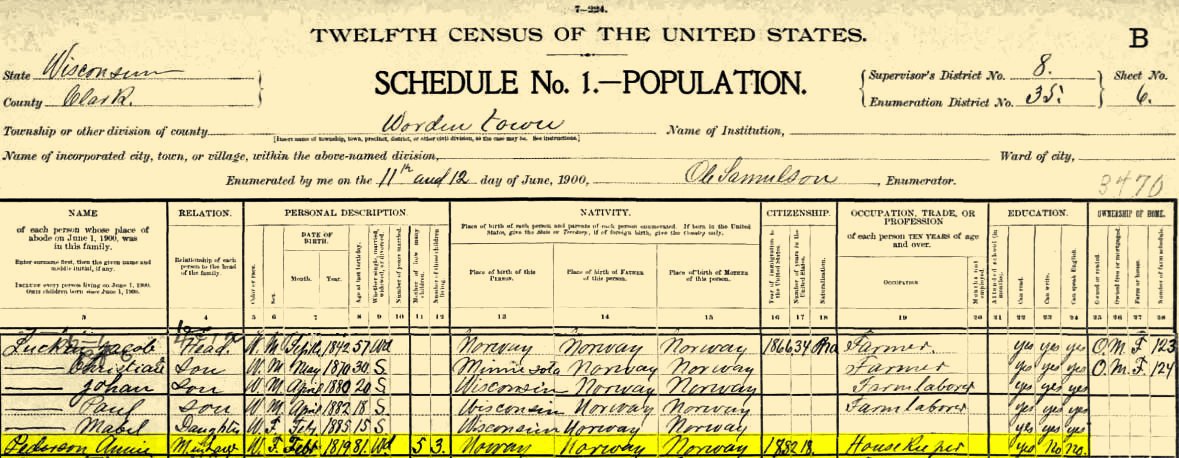 7-224.
TWELFTH CENSUS OF THE UNITED STATES.
B
State Wisconsin
County Clark.
SCHEDULE No. 1.—POPULATION.
Supervisor's District No. 8.
Enumeration District No. 35.
Sheet No.
6.
Township or other division of county Worden town
[Insert name of township, town, precinct, district, or other civil division, as the case may be. See instructions.]
Name of Institution,
Name of incorporated city, town, or village, within the above-named division,
Ward of city,
Enumerated by me on the 11th and 12 day of June, 1900, Ole Samulson, Enumerator.
3470
NAME
of each person whose place of
abode on June 1, 1900, was
in this family.
Enter surname first, then the given name and
middle initial, if any.
INCLUDE every person living on June 1, 1900.
OMIT children born since June 1, 1900.
3
RELATION.
Relationship of each
person to the head
of the family.
4
PERSONAL DESCRIPTION.
Color or race.
5
Sex.
6
DATE OF
BIRTH.
Month.
Year.
7
Age at last birthday.
8
Whether single, married,
widowed, or divorced.
9
Number of years married.
10
Mother of how many
children.
11
Number of these children
living.
12
NATIVITY.
Place of birth of each person and parents of each person enumerated. If born in the United
States, give the State or Territory; if of foreign birth, give the Country only.
Place of birth of this
PERSON.
13
Place of birth of FATHER
of this person.
14
Place of birth of MOTHER
of this person.
15
CITIZENSHIP.
Year of immigration to
the United States.
16
Number of years in the
United States.
17
Naturalization.
18
OCCUPATION, TRADE, OR
PROFESSION
of each person TEN YEARS of age
and over.
OCCUPATION
19
Months not
employed.
20
EDUCATION.
Attended school (in
months).
21
Can read.
22
Can write.
23
Can speak English.
24
OWNERSHIP OF HOME.
Owned or rented.
25
Owned free or mortgaged.
26
Farm or house.
27
Number of farm schedule.
28
Jacob Head W M 1842 57 Wd Norway Norway Norway 1866 34 Farmer. yes yes yes O. M. F 123
Son W M May 1870 30 S Minnesota Norway Norway Farmer yes yes yes O. M. F 124
Johan Son W M April 1880 20 S Wisconsin Norway Norway Farm laborer yes yes yes
Paul Son W M April 1882 18 S Wisconsin Norway Norway Farm laborer yes yes yes
Mabel Daughter W F 1885 15 S Wisconsin Norway Norway yes yes yes
Pederson Annie W F Febr 1819 81 Wd 5 3. Norway Norway Norway 18. House Keeper yes No no.